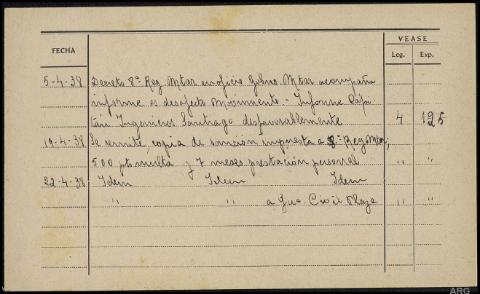 FECHA
VEASE
Leg. Exp.
5-4-38 Decreto 8ª Reg. Mtar en oficio Gbno. Mtar acompaña
informe es desafecto Movimiento.- Informe Capi
tán Ingenieros Santiago desfavorablemente 4 125
19-4-38 Se remite copia de sancion impuesta a 8ª Reg Mtar,
500 pts multa y 7 meses prestación personal " "
22-4-38 Idem Idem Idem
" " a Gno. Civil Plaza " "
ARG